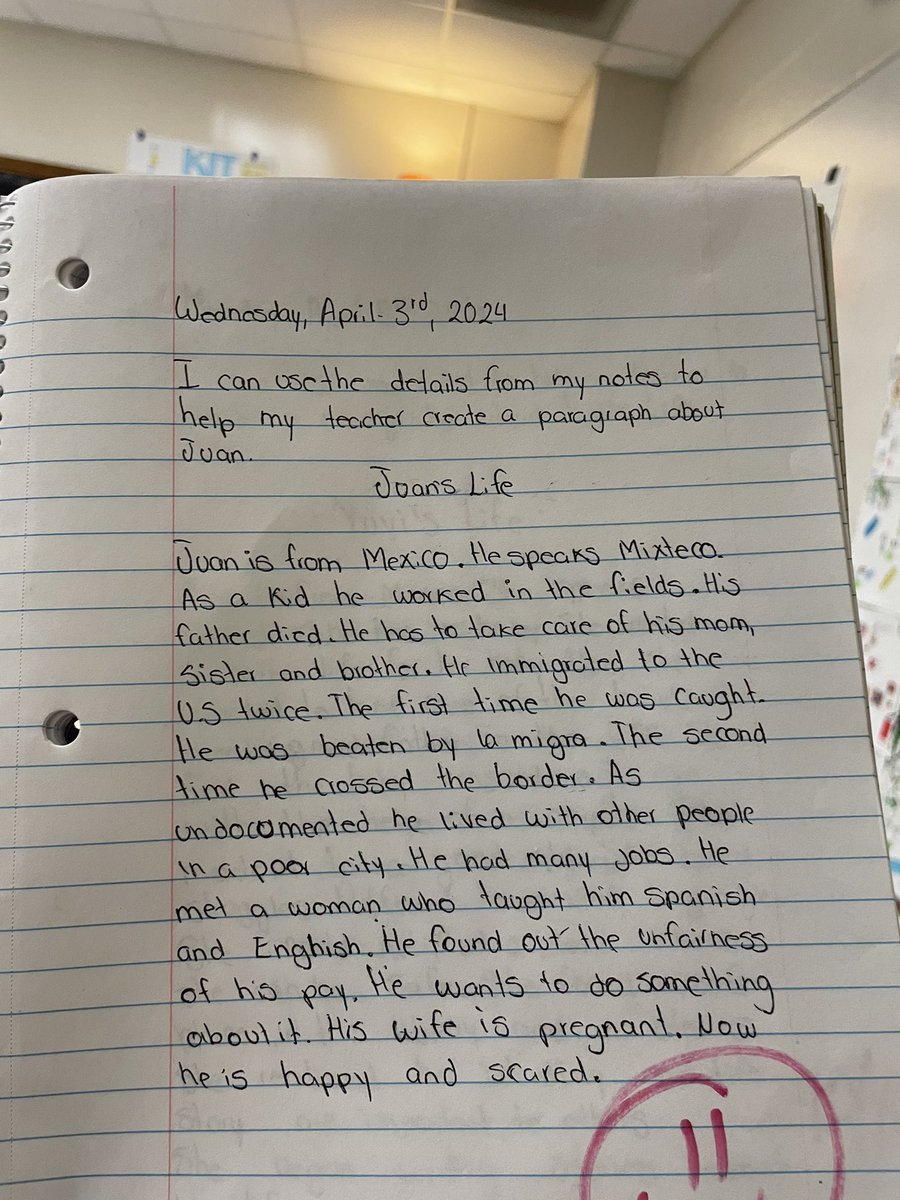 KIT
Wednesday, April 3rd, 2024
I can use the details from my notes to
help my teacher create a paragraph about
Juan.
Juan's Life
Juan is from Mexico. He speaks Mixteco.
As a kid he worked in the fields. His
father died. He has to take care of his mom,
sister and brother. He immigrated to the
U.S twice. The first time he was caught.
He was beaten by la migra. The second
time he crossed the border. As
undocumented he lived with other people
in a poor city. He had many jobs. He
met a woman who taught him Spanish
and Enghish. He found out the unfairness
of his pay. He wants to do something
about it. His wife is pregnant. Now
he is happy and scared.